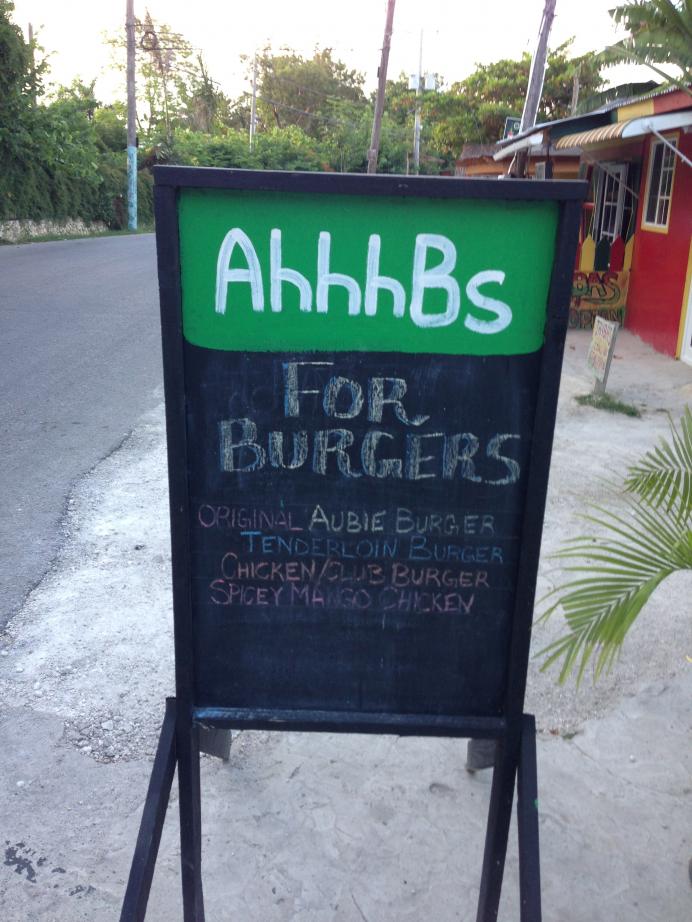 AhhhBs
FOR
BURGERS
ORIGINAL AUBIE BURGER
TENDERLOIN BURGER
CHICKEN/CLUB BURGER
SPICEY MANGO CHICKEN